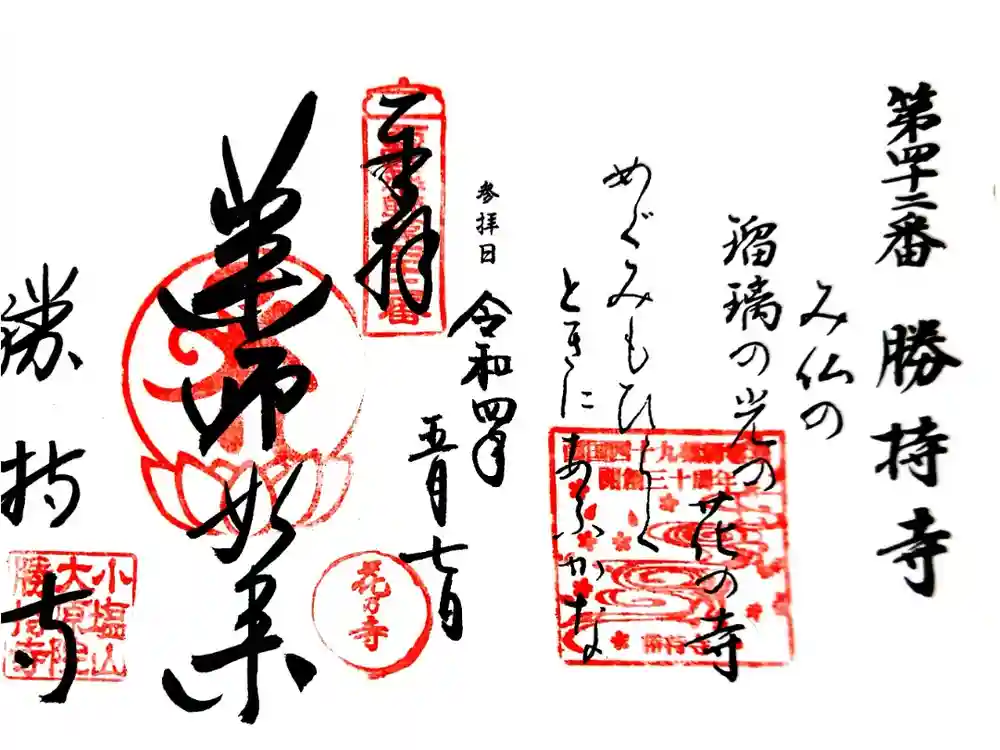 第四十二番 勝持寺
み仏の
瑠璃の光の花の寺
めぐみもひらく
ときにあふかな
西国四十九薬師霊場
開創三十周年
勝持寺
参拝日
令和四年
五月七日
奉拝
西国薬師第四十二番
薬師如来
花の寺
勝持寺
小塩山
大原院
勝持寺